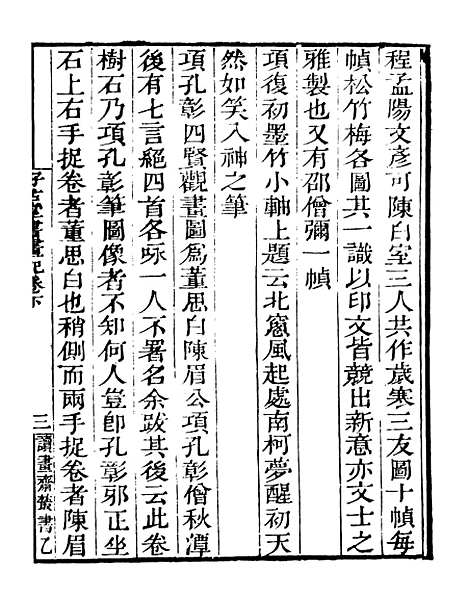 程孟陽文彥可陳白室三人共作歲寒三友圖十幀每
幀松竹梅各圖其一識以印文皆競出新意亦文士之
雅製也又有邵僧彌一幀
項復初墨竹小軸上題云北窻風起處南柯夢醒初天
然如笑入神之筆
項孔彰四賢觀畫圖爲董思白陳眉公項孔彰僧秋潭
後有七言絕四首各咏一人不署名余跋其後云此卷
樹石乃項孔彰筆圖像者不知何人豈卽孔彰邪正坐
石上右手捉卷者董思白也稍側而兩手捉卷者陳眉
好古堂書畫記卷下
三
讀畫齋叢書乙